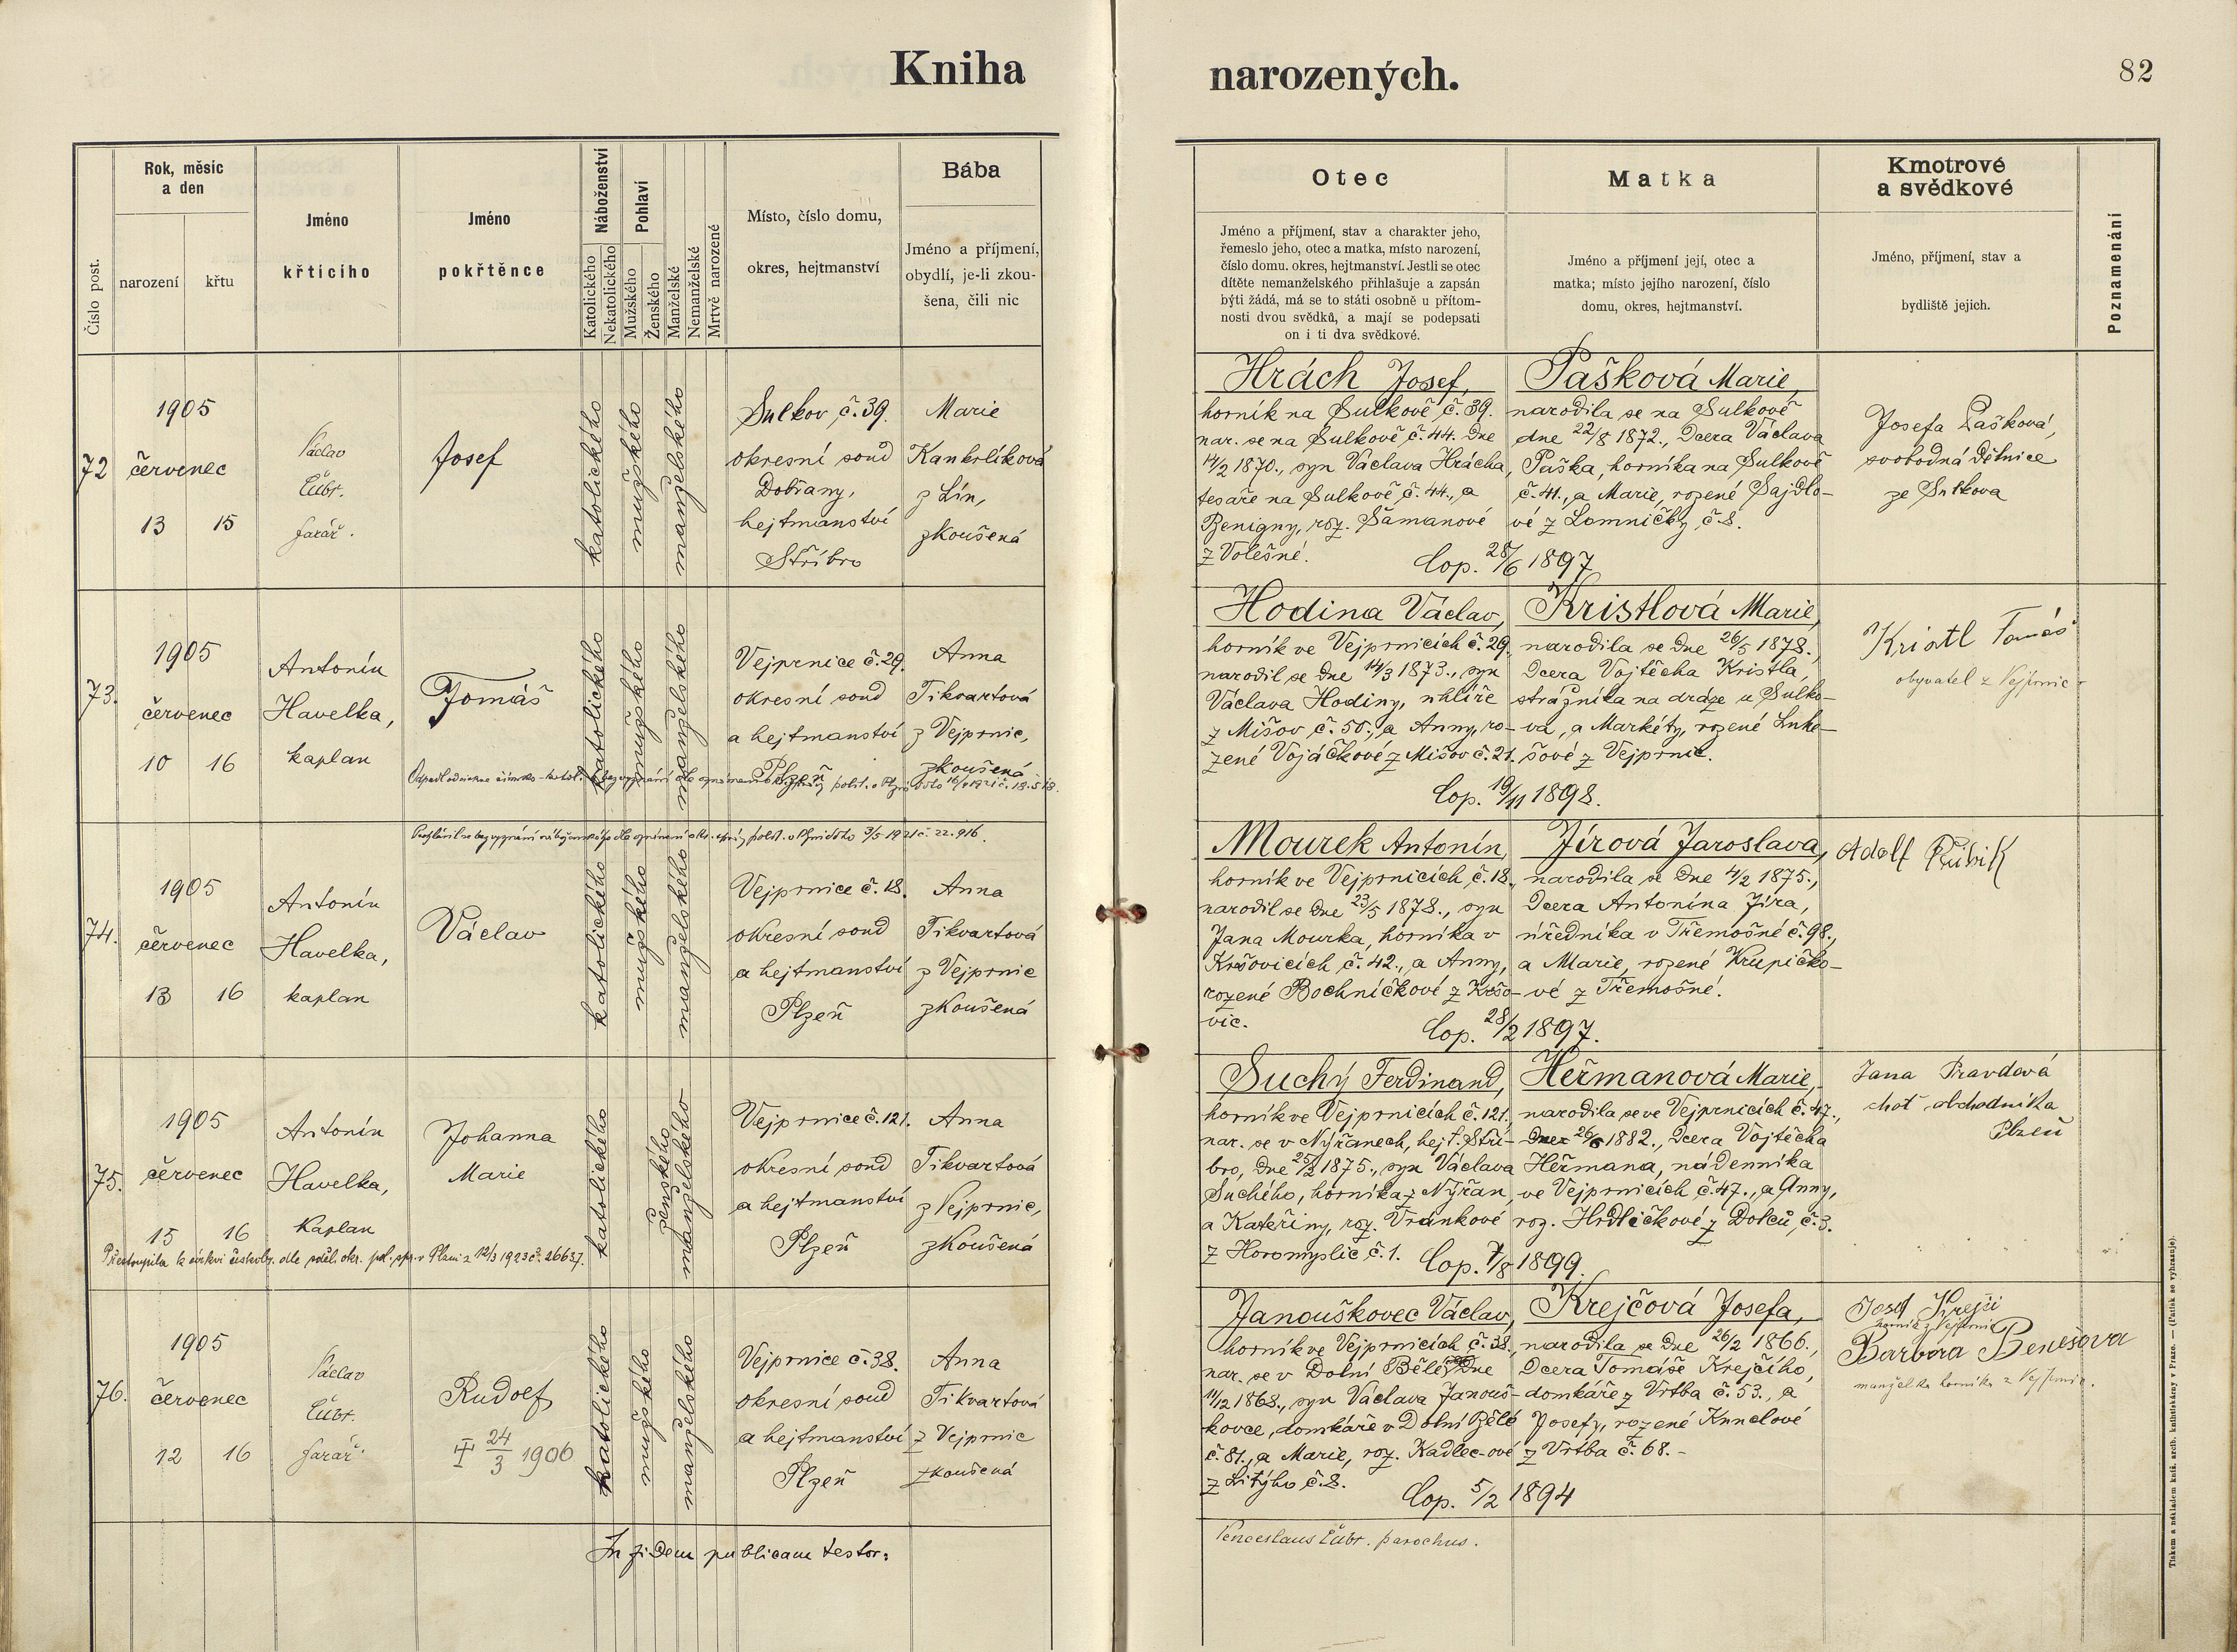 Kniha narozených.
82
Číslo post.
Rok, měsíc
a den
narození
křtu
Jméno
křtícího
Jméno
pokřtěnce
Náboženství
Katolického
Nekatolického
Pohlaví
Mužského
Ženského
Manželské
Nemanželské
Mrtvě narozené
Místo, číslo domu,
okres, hejtmanství
Bába
Jméno a příjmení,
obydlí, je-li zkou-
šena, čili nic
Otec
Jméno a příjmení, stav a charakter jeho,
řemeslo jeho, otec a matka, místo narození,
číslo domu. okres, hejtmanství. Jestli se otec
dítěte nemanželského přihlašuje a zapsán
býti žádá, má se to státi osobně u přítom-
nosti dvou svědků, a mají se podepsati
on i ti dva svědkové.
Matka
Jméno a příjmení její, otec a
matka; místo jejího narození, číslo
domu, okres, hejtmanství.
Kmotrové
a svědkové
Jméno, příjmení, stav a
bydliště jejich.
Poznamenání
72
1905
červenec
13 15
Václav
Čubr.
farář.
Josef
katolického
mužského
manželského
Sulkov č. 39.
okresní soud
Dobřany,
hejtmanství
Stříbro
Marie
Kankrlíková
z Lín,
zkoušená
Hrách Josef,
horník na Sulkově č. 39.
nar. se na Sulkově č. 44. dne
14/2 1870., syn Václava Hrácha,
tesaře na Sulkově č. 44., a
Benigny, roz. Šámanové
z Volešné.
Pašková Marie,
narodila se na Sulkově
dne 22/8 1872., dcera Václava
Paška, horníka na Sulkově
č. 41., a Marie, rozené Sajdlo-
vé z Lomničky č. 8.
Cop. 28/6 1897
Josefa Pašková,
svobodná dělnice
ze Sulkova
73.
1905
červenec
10 16
Antonín
Havelka,
kaplan
Tomáš
katolického
mužského
manželského
Vejprnice č. 29.
okresní soud
a hejtmanství
Plzeň
Anna
Tikvartová
z Vejprnic,
zkoušená
Hodina Václav,
horník ve Vejprnicích č. 29.
narodil se dne 14/3 1873., syn
Václava Hodiny, uhlíře
z Mišov č. 50., a Anny, ro-
zené Vojáčkové z Mišov č. 21.
Kristlová Marie,
narodila se dne 26/5 1878.,
dcera Vojtěcha Kristla,
strážníka na dráze u Sulko-
va, a Markéty, rozené Luke-
šové z Vejprnic.
Cop. 19/11 1898.
Kristl Tomáš
obyvatel z Vejprnic
74.
1905
červenec
13 16
Antonín
Havelka,
kaplan
Václav
katolického
mužského
manželského
Vejprnice č. 18.
okresní soud
a hejtmanství
Plzeň
Anna
Tikvartová
z Vejprnic
zkoušená
Mourek Antonín,
horník ve Vejprnicích č. 18.,
narodil se dne 23/5 1878., syn
Jana Mourka, horníka v
Kršovicích č. 42., a Anny,
rozené Bochníčkové z Kršo-
vic.
Jírová Jaroslava,
narodila se dne 4/2 1875.,
dcera Antonína Jíra,
úředníka v Třemošné č. 98.,
a Marie, rozené Krupičko-
vé z Třemošné.
Cop. 28/2 1897.
Adolf
75.
1905
červenec
15 16
Antonín
Havelka,
Kaplan
Johanna
Marie
Přestoupila k církvi českosl. dle sděl. okr. pol. spr. v Plzni z 12/3 1923 č. 26637.
katolického
ženského
manželského
Vejprnice č. 121.
okresní soud
a hejtmanství
Plzeň
Anna
Tikvartová
z Vejprnic,
zkoušená
Suchý Ferdinand,
horník ve Vejprnicích č. 121.
nar. se v Nýřanech, hejt. Stří-
bro, dne 25/2 1875., syn Václava
Suchého, horníka z Nýřan,
a Kateřiny, roz. Vránkové
z Horomyslic č. 1.
Heřmanová Marie,
narodila se ve Vejprnicích č. 47.,
dne 26/6 1882., dcera Vojtěcha
Heřmana, nádenníka
ve Vejprnicích č. 47., a Anny,
roz. Hrdličkové z Dolců, č. 3.
Cop. 7/8 1899.
Jana Pravdová
choť obchodníka
Plzeň
76.
1905
červenec
12 16
Václav
Čubr.
farář.
Rudolf
24/3 1906
katolického
mužského
manželského
Vejprnice č. 38.
okresní soud
a hejtmanství
Plzeň
Anna
Tikvartová
z Vejprnic
zkoušená
Janouškovec Václav,
horník ve Vejprnicích č. 38.,
nar. se v Dolní Bělé, dne
11/12 1868., syn Václava Janouš-
kovce, domkáře v Dolní Bělé
č. 81., a Marie, roz. Kadlec-ové
z Litýho č. 8.
Krejčová Josefa,
narodila se dne 26/2 1866.,
dcera Tomáše Krejčího,
domkáře z Vrtba č. 53., a
Josefy, rozené Kunclové
z Vrtba č. 68.-
Cop. 5/2 1894
Josef Krejčí
horník z Vejprnic
Barbora Benešova
manželka horníka z Vejprnic.
In fidem publicam testor:
Venceslaus Čubr. parochus.
Tiskem a nákladem kníž. arcib. knihtiskárny v Praze. — (Patisk se vyhrazuje).